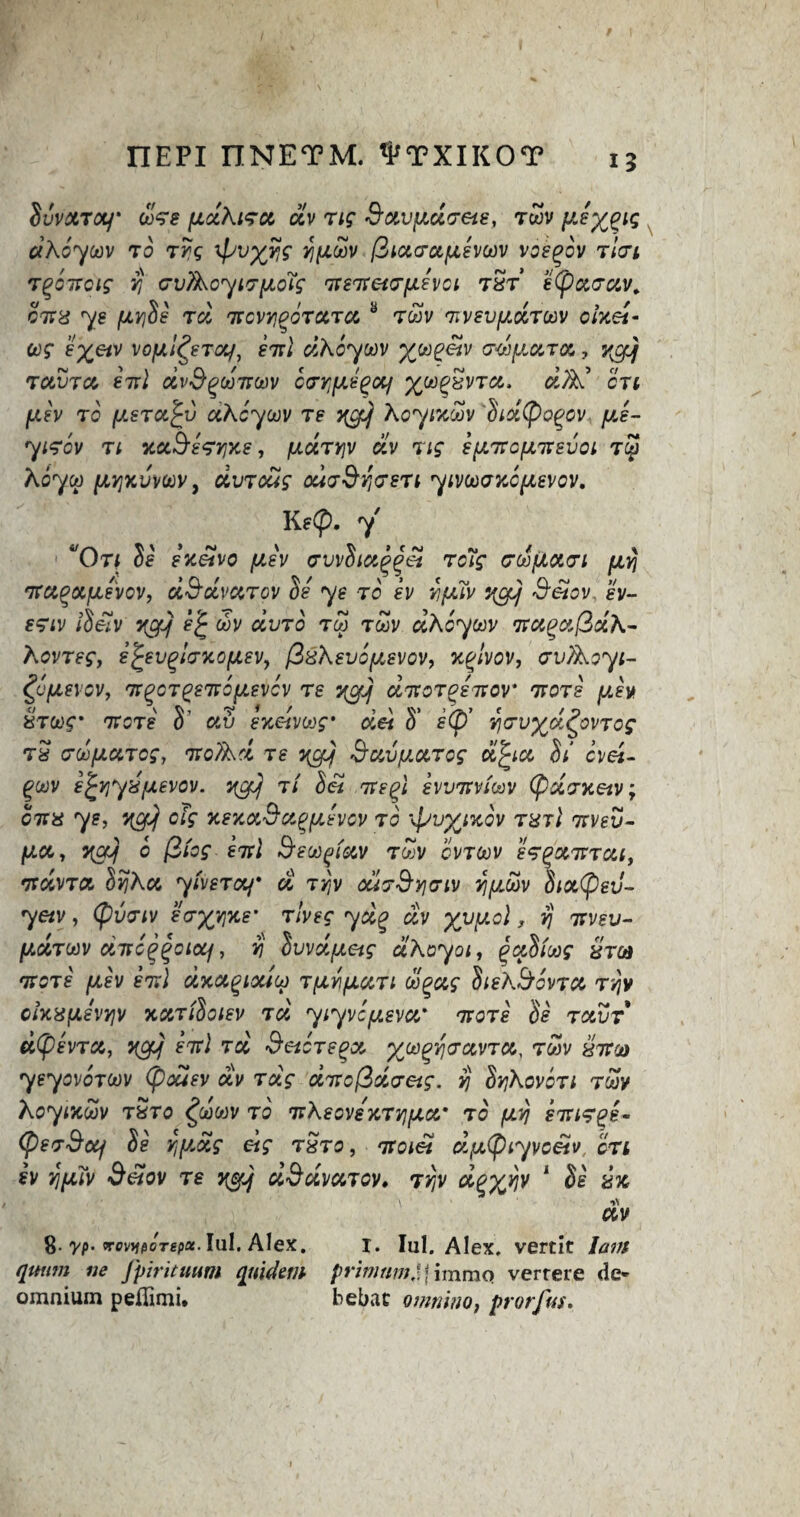 ΠΕΡΙ ΠΝΕΥΜ. ΨΥΧΙΚΟΥ 13
δύναται· ὥςε μάλιςα ἄν τις θαυμάσειε, τῶν μέχρις
ἀλόγων τὸ τῆς ψυχῆς ἡμῶν βιασαμένων νοερὸν τίσι
τρόποις ἢ συλλογισμοῖς πεπεισμένοι τȣ͂τ' ἔφασαν.
ὅπȣ γε μηδὲ τὰ πονηρότατα ⁸ τῶν πνευμάτων οἰκεί-
ως ἔχειν νομίζεται, ἐπὶ ἀλόγων χωρεῖν σώματα, καὶ
ταῦτα ἐπὶ ἀνθρώπων ὁσημέραι χωρȣ͂ντα. ἀλλ' ὅτι
μὲν τὸ μεταξὺ ἀλόγων τε καὶ λογικῶν διάφορον μέ-
γιςόν τι καθέςηκε, μάτην ἄν τις ἐμπομπεύοι τῷ
λόγῳ μηκύνων, ἀυταῖς αἰσθήσετι γινωσκόμενον.
Κεφ. γ
Ὅτι δὲ ἐκεῖνο μὲν συνδιαρρεῖ τοῖς σώμασι μὴ
παραμένον, ἀθάνατον δέ γε τὸ ἐν ἡμῖν καὶ θεῖον, ἔν-
εςιν ἰδεῖν καὶ ἐξ ὧν ἀυτὸ τῷ τῶν ἀλόγων παραβάλ-
λοντες, ἐξευρίσκομεν, βȣλευόμενον, κρίνον, συλλογι-
ζόμενον, προτρεπόμενόν τε καὶ ἀποτρέπον· ποτὲ μὲν
ȣ̔́τως· ποτὲ δ' αὖ ἐκείνως· ἀεὶ δ' ἐφ' ἡσυχάζοντος
τȣ͂ σώματος, πολλά τε καὶ θαύματος ἄξια δι' ὀνεί-
ρων ἐξηγȣ́μενον. καὶ τί δεῖ περὶ ἐνυπνίων φάσκειν;
ὅπȣ γε, καὶ οἷς κεκαθαρμένον τὸ ψυχικὸν τȣτὶ πνεῦ-
μα, καὶ ὁ βίος ἐπὶ θεωρίαν τῶν ὄντων ἔςραπται,
πάντα δῆλα γίνεται· ἃ τὴν αἴσθησιν ἡμῶν διαφεύ-
γειν, φύσιν ἔσχηκε· τίνες γὰρ ἂν χυμοὶ, ἢ πνευ-
μάτων ἀπόρροιαι, ἢ δυνάμεις ἄλογοι, ῥαδίως ȣ̔́τω
ποτὲ μὲν ἐπὶ ἀκαριαίῳ τμήματι ὥρας διελθόντα τὴν
οἰκȣμένην κατίδοιεν τὰ γιγνόμενα· ποτὲ δὲ ταῦτ'
ἀφέντα, καὶ ἐπὶ τὰ θειότερα χωρήσαντα, τῶν ȣ̓́πω
γεγονότων φαῖεν ἂν τὰς ἀποβάσεις. ἢ δηλονότι τῶν
λογικῶν τȣ͂το ζώων τὸ πλεονέκτημα· τὸ μὴ ἐπιςρέ-
φεσθαι δὲ ἡμᾶς εἰς τȣ͂το, ποιεῖ ἀμφιγνοεῖν, ὅτι
ἐν ἡμῖν θεῖον τε καὶ ἀθάνατον. τὴν ἀρχὴν ¹ δὲ ȣ̓κ
ἂν
8. γρ. πονηρότερα. Iul. Alex.
quum ne ſpirituum quidem
omnium peſſimi.
1. Iul. Alex. vertit Iam
primum. immo verrere de-
bebat omnino, prorſus.